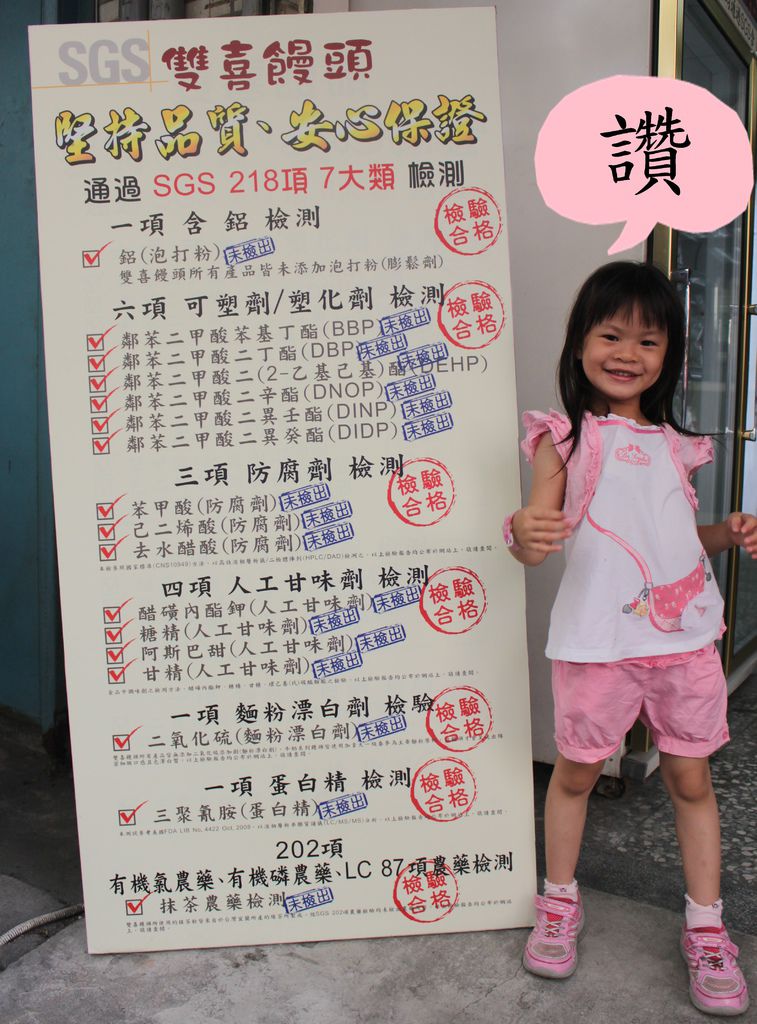 SGS 雙喜饅頭
堅持品質、安心保證
通過 SGS 218項 7大類 檢測
一項 含 鋁 檢測
檢驗合格
鋁(泡打粉) 未檢出
雙喜饅頭所有產品皆未添加泡打粉(膨鬆劑)
六項 可塑劑/塑化劑 檢測
檢驗合格
鄰苯二甲酸苯基丁酯(BBP) 未檢出
鄰苯二甲酸二丁酯(DBP) 未檢出
鄰苯二甲酸二(2-乙基己基)酯(DEHP) 未檢出
鄰苯二甲酸二辛酯(DNOP) 未檢出
鄰苯二甲酸二異壬酯(DINP) 未檢出
鄰苯二甲酸二異癸酯(DIDP) 未檢出
三項 防腐劑 檢測
檢驗合格
苯甲酸(防腐劑) 未檢出
己二烯酸(防腐劑) 未檢出
去水醋酸(防腐劑) 未檢出
四項 人工甘味劑 檢測
檢驗合格
醋磺內酯鉀(人工甘味劑) 未檢出
糖精(人工甘味劑) 未檢出
阿斯巴甜(人工甘味劑) 未檢出
甘精(人工甘味劑) 未檢出
一項 麵粉漂白劑 檢驗
檢驗合格
二氧化硫(麵粉漂白劑) 未檢出
一項 蛋白精 檢測
檢驗合格
三聚氰胺(蛋白精) 未檢出
202項
有機氯農藥、有機磷農藥、LC 87項農藥檢測
檢驗合格
抹茶農藥檢測 未檢出
讚